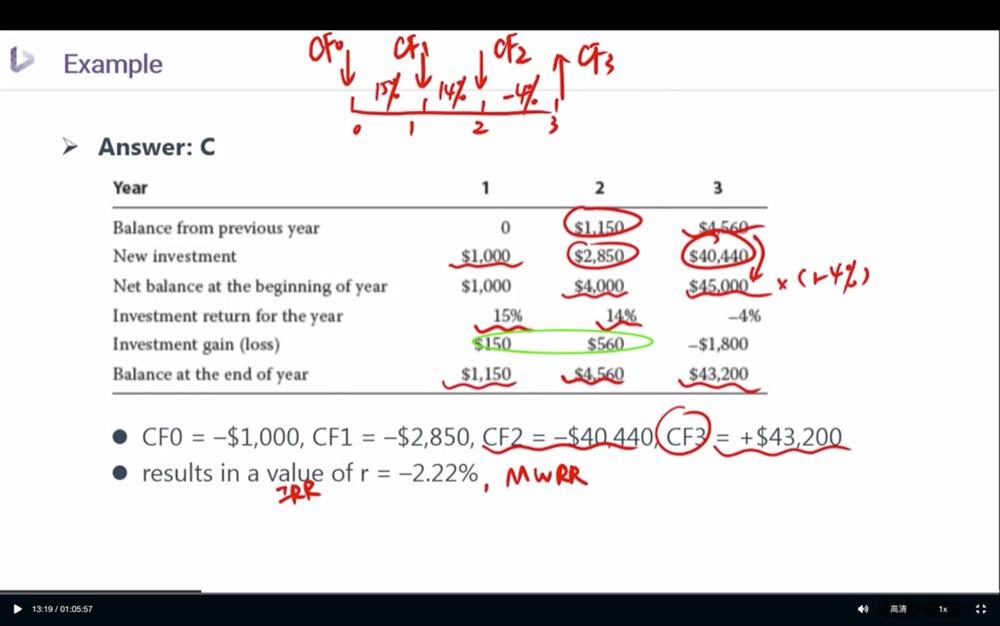 CF0 CF1 CF2 CF3
Example
15% 14% -4%
0 1 2 3
➤ Answer: C
Year 1 2 3
Balance from previous year 0 $1,150 $4,560
New investment $1,000 $2,850 $40,440
Net balance at the beginning of year $1,000 $4,000 $45,000 × (1-4%)
Investment return for the year 15% 14% –4%
Investment gain (loss) $150 $560 –$1,800
Balance at the end of year $1,150 $4,560 $43,200
● CF0 = –$1,000, CF1 = –$2,850, CF2 = –$40,440, CF3 = +$43,200
● results in a value of r = –2.22%, MWRR
IRR
13:19 / 01:05:57 高清 1x